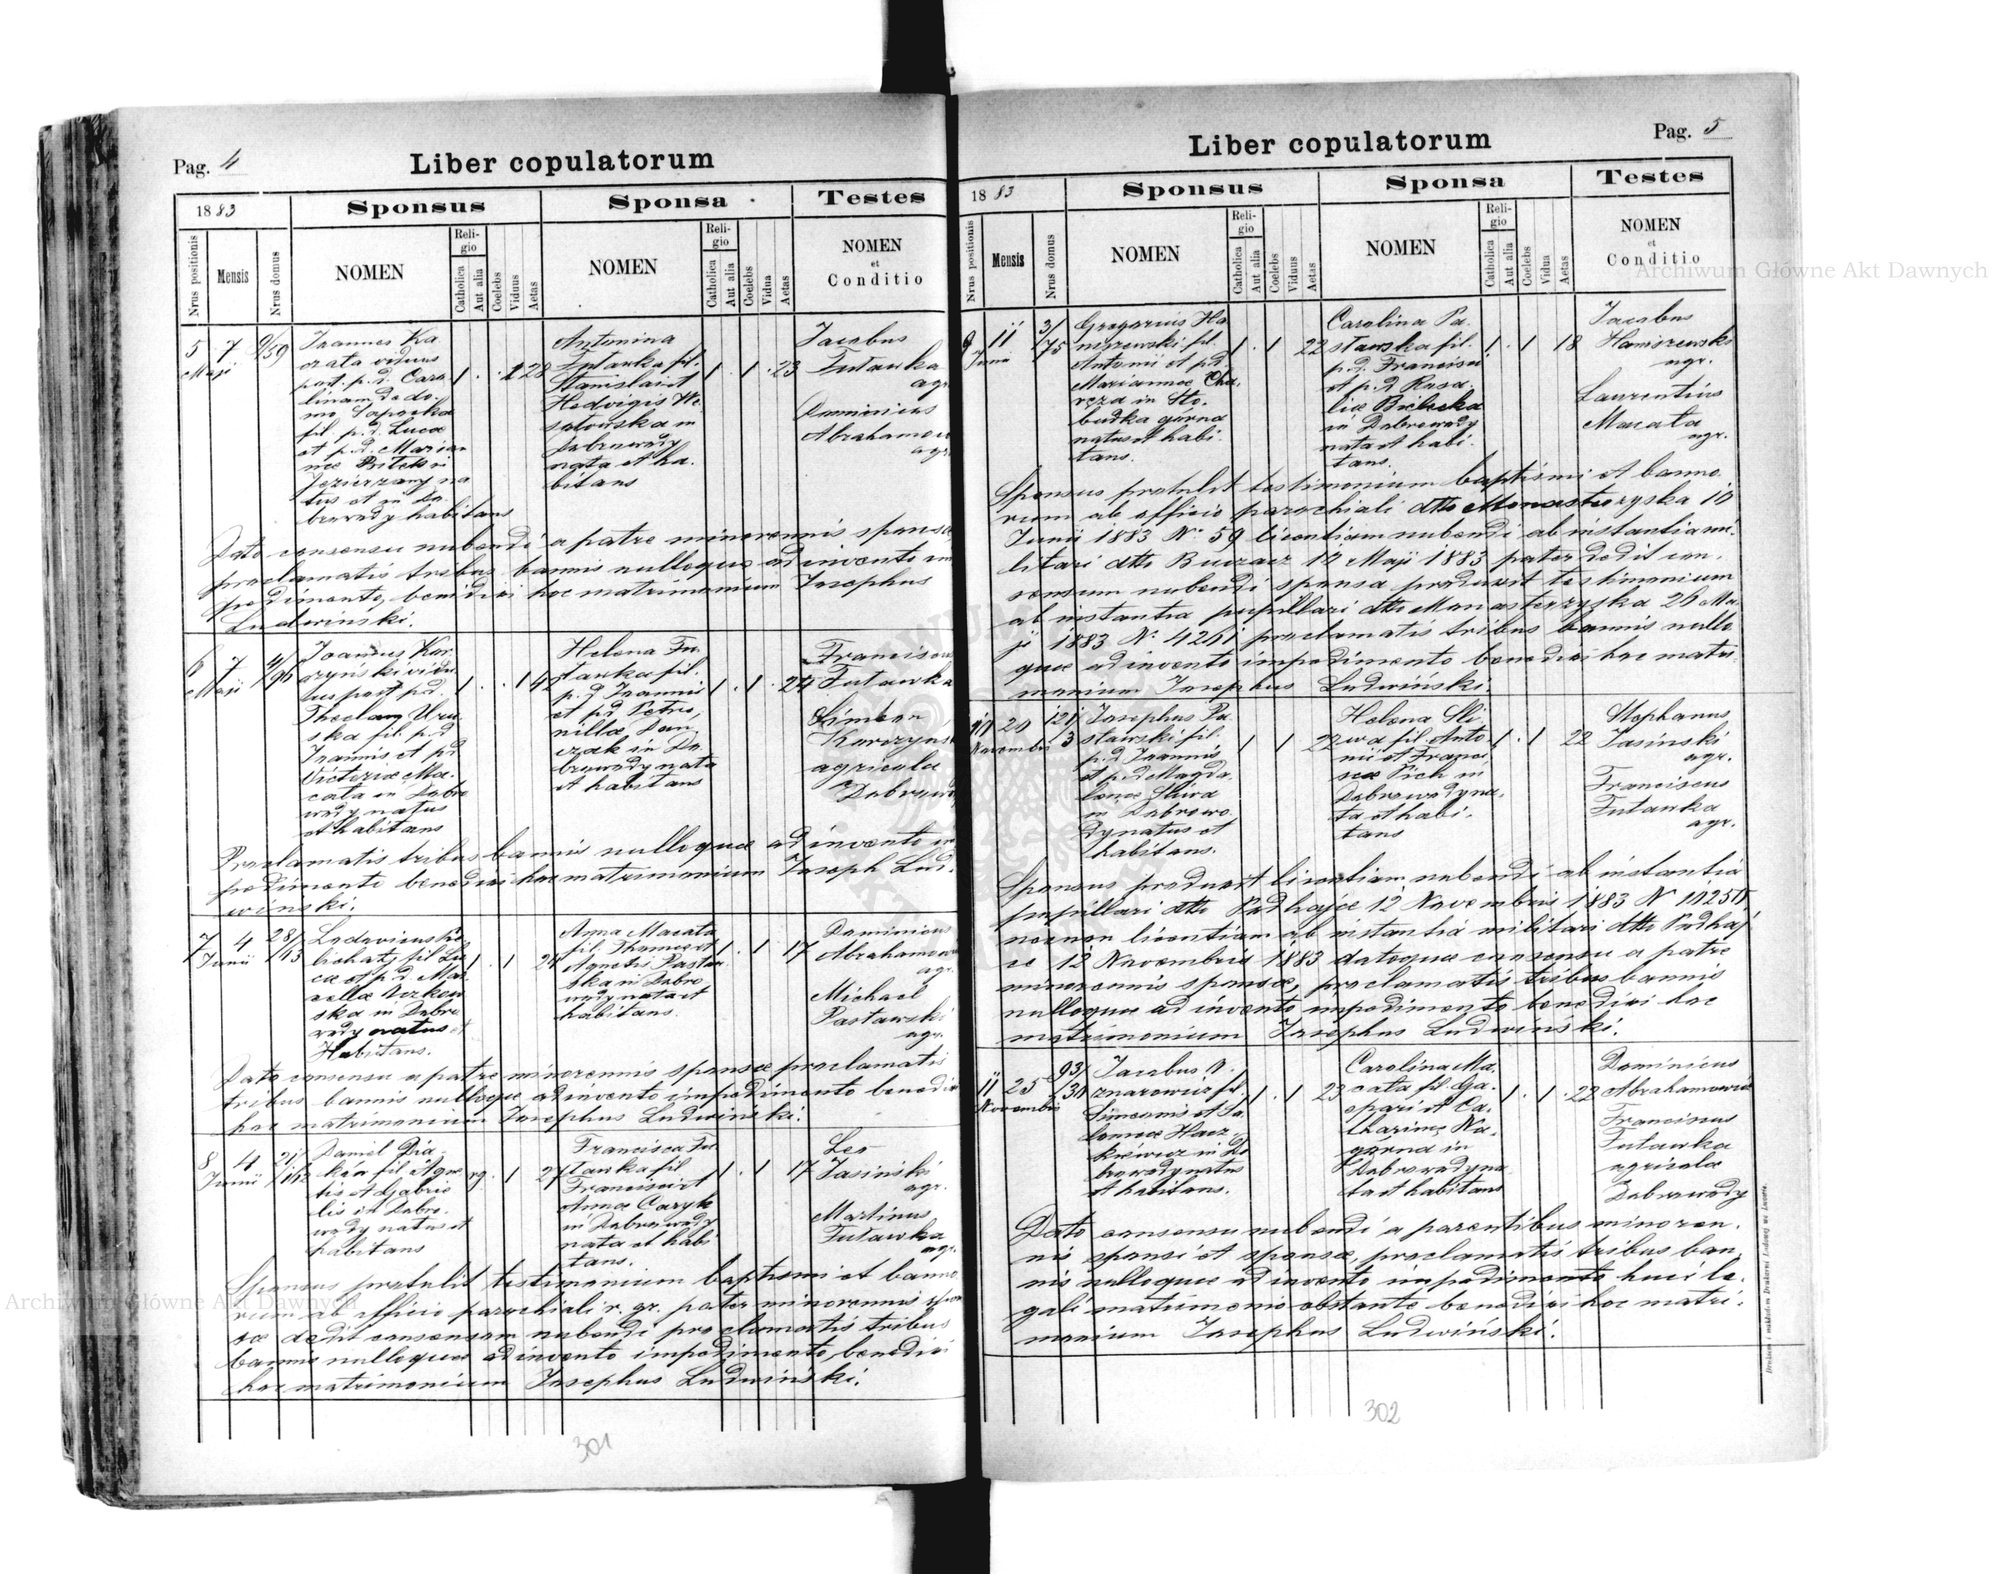 Pag. 4
Liber copulatorum
1883
Sponsus
Sponsa
Testes
Nrus positionis
Mensis
Nrus domus
NOMEN
Religio
Catholica
Aut alia
Coelebs
Viduus
Aetas
NOMEN
Religio
Catholica
Aut alia
Coelebs
Vidua
Aetas
NOMEN
et
Conditio
5 7 Maji
59
Joannes Ka
viduus
post. p. d. Caro
linam de do
mo
fil. p. d. Lucae
et p. d. Marian
nae
Jezierzany na
tus et in Do
browody habitans
1 . . 1 28
Antonina
Futawka fil.
Stanislai et
Hedvigis We
sołowska in
Dobrowody
nata et ha
bitans
1 . 1 . 23
Jacobus
Futawka
agr.
Dominicus
Abrahamow
agr.
Dato consensu nubendi a patre minorennis sponsae
proclamatis tribus bannis nulloque adinvento im
pedimento, benedixi hoc matrimonium Josephus
Ludwiński.
6 7 Maji
96
Joannes Kor
czyński vidu
us post p.d.
Theclam
ska fil. p.d.
Joannis et p.d.
Victoriae Ma
cata in Dobro
wody natus
et habitans
1 . . 1 42
Helena Fu
tawka fil.
p.d. Joannis
et p.d. Petro
nillae Dan
czak in Do
browody nata
et habitans
1 . 1 . 24
Franciscus
Futawka
Simeon
Korczyński
agricolae
Dobrowody
Proclamatis tribus bannis nulloque adinvento im
pedimento benedixi hoc matrimonium Joseph Lud
wiński.
7 4 Junii
28/
Ludovicus
fil. Lu
cae et p.d. Mar
cellae
ska in Dobro
wody natus et
Habitans.
1 . 1 24
Anna Macata
fil. Thomae et
Agnetis Pastaw
ska in Dobro
wody nata et
habitans.
1 . 1 17
Dominicus
Abrahamowicz
agr.
Michael
Pastawski
agr.
Dato consensu a patre minorennis sponsae proclamatis
tribus bannis nulloque adinvento impedimento benedixi
hoc matrimonium Josephus Ludwiński.
8 4 Junii
Daniel Dia
ków fil Agne
tis et Gabrie
lis in Dobro
wody natus et
habitans
rg. . 1 27
Francisca Fu
tawka fil
Francisci et
Anna Caryk
in Dobrowody
nata et habi
tans.
1 . 1 17
Leo
Jasiński
agr.
Martinus
Futawka
agr.
Sponsus protulit testimonium baptismi et banno
rum ab officio parochiali r. gr. pater minorennis spon
sae dedit consensum nubendi proclamatis tribus
bannis nulloque adinvento impedimento, benedixi
hoc matrimonium Josephus Ludwiński.
301
Pag. 5
Liber copulatorum
1883
Sponsus
Sponsa
Testes
Nrus positionis
Mensis
Nrus domus
NOMEN
Religio
Catholica
Aut alia
Coelebs
Viduus
Aetas
NOMEN
Religio
Catholica
Aut alia
Coelebs
Vidua
Aetas
NOMEN
et
Conditio
9 11 Junii
3/ 75
Gregorius Ha
niszewski fil.
Antonii et p.d.
Mariannae Cha
ręza in Sło
budka górna
natus et habi
tans.
1 . 1 22
Carolina Pa
stawska fil.
p.d. Francisci
et p.d. Rosa
liae Bielecka
in Dobrowody
nata et habi
tans.
1 . 1 18
Jacobus
Haniszewski
agr.
Laurentius
Macata
agr.
Sponsus protulit testimonium baptismi et banno
rum ab officio parochiali dtto Monasterzyska 10
Junii 1883 No 59 licentiam nubendi ab instantia mi
litari dtto Buczacz 12 Maji 1883 pater dedit con
sensum nubendi sponsa produxit testimonium
ab instantia pupillari dtto Monasterzyska 26 Ma
ji 1883 No 4261 proclamatis tribus bannis nullo
que adinvento impedimento benedixi hoc matri
monium Josephus Ludwiński.
10 20 Novembris
121/ 3
Josephus Pa
stawski fil.
p.d. Joannis
et p.d. Magda
lenae Śliwa
in Dobrowo
dy natus et
habitans.
1 1 22
Helena Śli
wa fil. Anto
nii et Franci
scae Pich in
Dobrowody na
ta et habi
tans
1 . 1 22
Stephanus
Jasiński
agr.
Franciscus
Futawka
agr.
Sponsus produxit licentiam nubendi ab instantia
pupillari dtto Podhajce 12 Novembris 1883 N 10250
necnon licentiam ab instantia militari dtto Podhaj
ce 12 Novembris 1883 datoque consensu a patre
minorennis sponsae, proclamatis tribus bannis
nulloque adinvento impedimento benedixi hoc
matrimonium Josephus Ludwiński.
11 25 Novembris
93/ 30
Jacobus N.
znarowicz fil.
Simeonis et Sa
lomeae Hacz
kiewicz in Do
browody natus
et habitans.
1 . 1 23
Carolina Ma
cata fil. Ga
spari et Ca
tharinae Na
górna in
Dobrowody na
ta et habitans
1 . 1 . 22
Dominicus
Abrahamowicz
Franciscus
Futawka
agricolae
Dobrowody
Dato consensu nubendi a parentibus minoren
nis sponsi et sponsae, proclamatis tribus ban
nis nulloque adinvento impedimento huic le
gali matrimonio obstante benedixi hoc matri
monium Josephus Ludwiński.
302
Archiwum Główne Akt Dawnych
Archiwum Główne Akt Dawnych